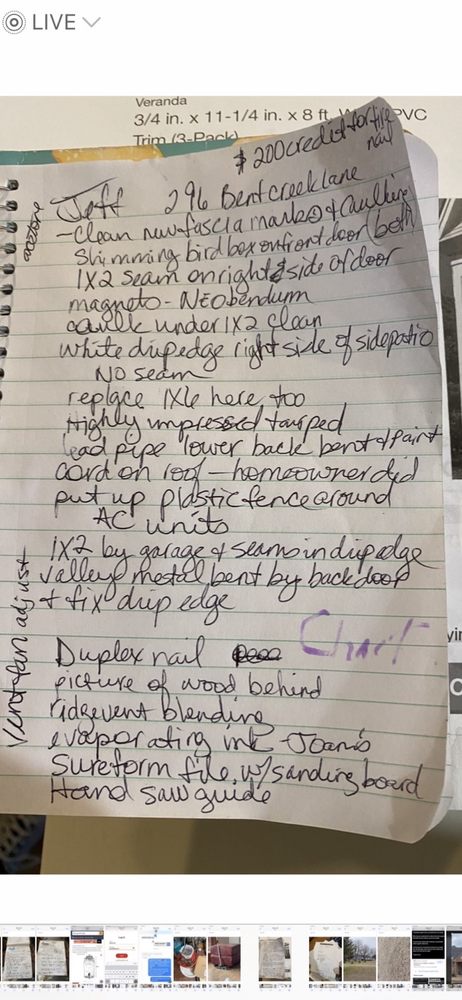 LIVE
Veranda
3/4 in. x 11-1/4 in. x 8 ft. PVC
Trim (3-Pack)
$200 credit for tire
nail
acetone
Jeff 296 Bentcreek lane
-Clean new fascia marks & caulking
Shimming bird box on front door (both
1X2 seam on right side of door
magneto - NEobendum
caulk under 1X2 clean
white dripedge right side of sidepatio
No seam
replace 1X6 here too
Highly impressed tarped
lead pipe lower back bent & paint
cord on roof - homeowner did
put up plastic fence around
AC units
1X2 by garage & seams in dripedge
valley metal bent by backdoor
& fix drip edge
Vent fan adjust
Duplex nail
picture of wood behind
ridgevent blending
evaporating ink - Joann's
Sureform file w/ sanding board
Hand saw guide